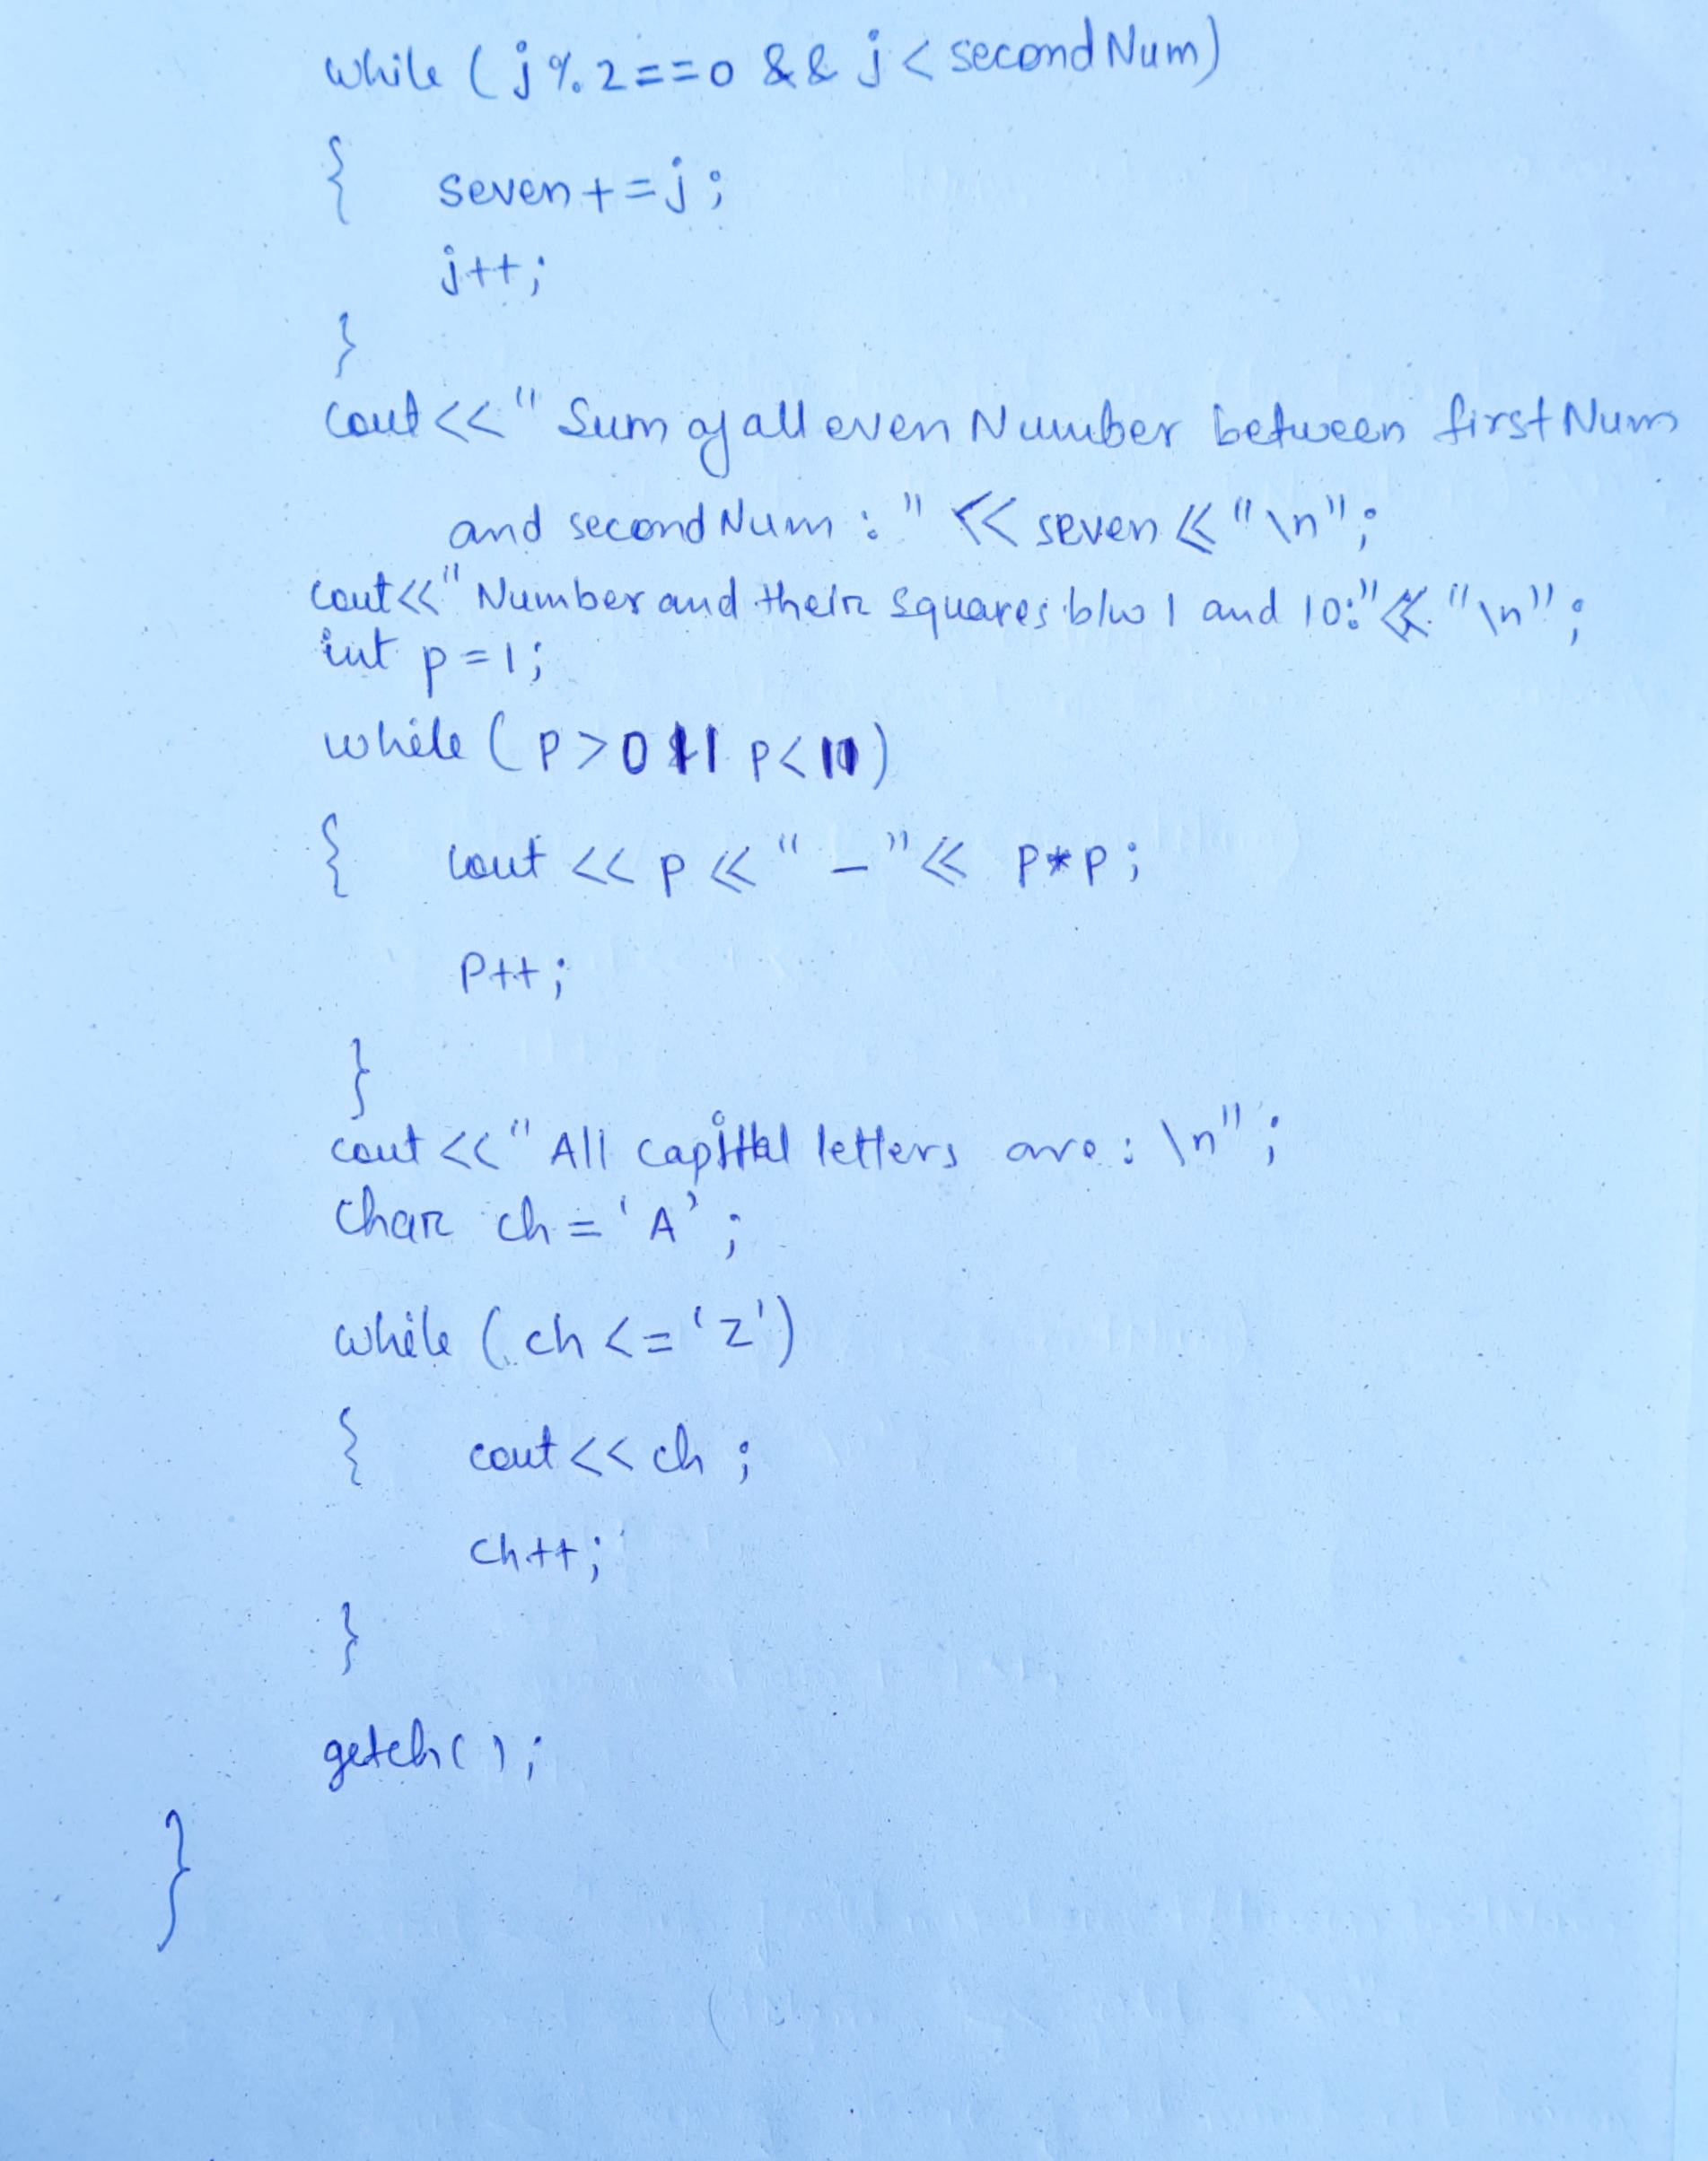 while (j%2==0 && j<secondNum)
{ seven+=j;
j++;
}
cout<<"Sum of all even Number between firstNum
and secondNum:"<<seven<<"\n";
cout<<"Number and their squares b/w 1 and 10:"<<"\n";
int p=1;
while (p>0 || p<11)
{ cout <<p<<" – "<< p*p;
p++;
}
cout<<"All capital letters are: \n";
char ch='A';
while (ch<='Z')
{ cout<<ch;
ch++;
}
getch();
}